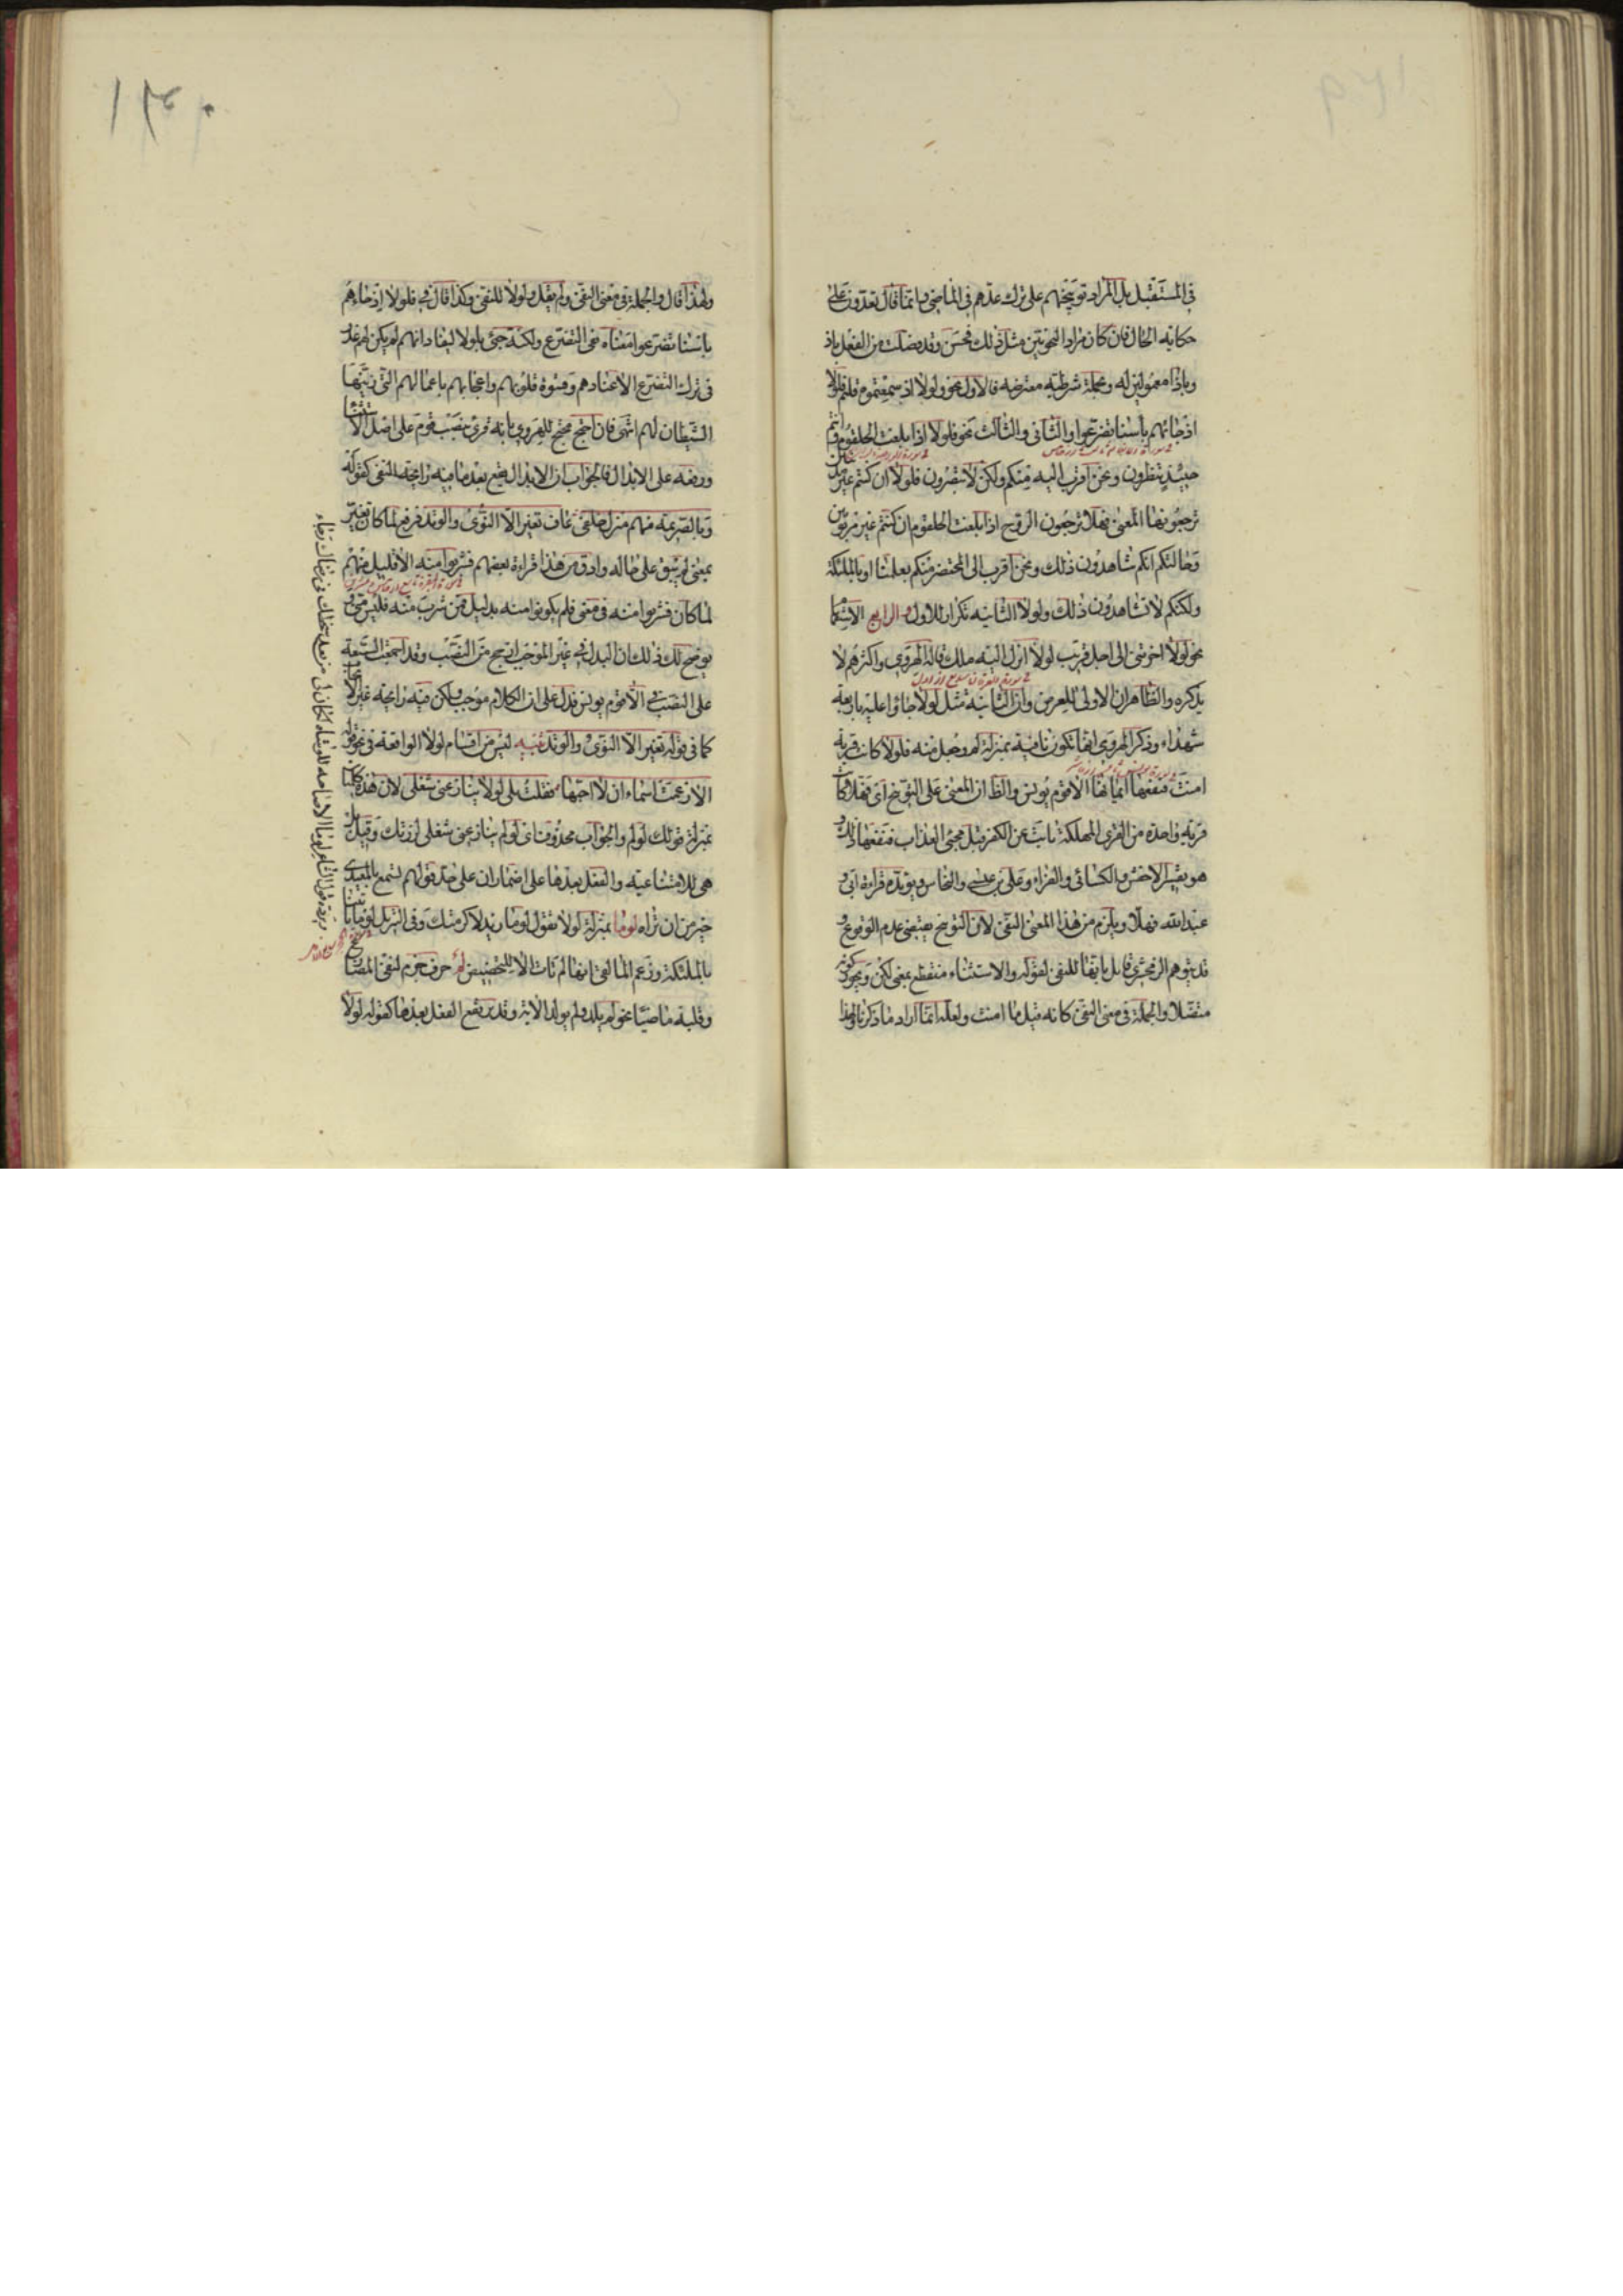 في المستقبل بل المراد توبيخهم على ترك عدهم في الماضي وانما قال تعدون على
حكاية الحال فان كان مراد النحويين مثل ذلك فحسن وقد فصلت من الفعل باذ
وباذا معمولين له وبجملة شرطية معترضة فالاول نحو ولولا اذ سمعتموه قلتم فلولا
اذ جائهم بأسنا تضرعوا والثاني والثالث نحو فلولا اذا بلغت الحلقوم وانتم
حينئذ تنظرون ونحن اقرب اليه منكم ولكن لا تبصرون فلولا ان كنتم غير مدينين
ترجعونها المعنى فهلا ترجعون الروح اذا بلغت الحلقوم ان كنتم غير مربوبين
وحالتكم انكم تشاهدون ذلك ونحن اقرب الى المحتضر منكم بعلمنا او بالملئكة
ولكنكم لا تشاهدون ذلك ولولا الثانية تكرار للاول والرابع الاستفهام
نحو لولا اخرتني الى اجل قريب لولا انزل اليه ملك قاله الهروي واكثرهم لا
يذكره والظاهر ان الاولى للعرض وان الثانية مثل لولا جاؤا عليه باربعة
شهداء وذكر الهروي انها تكون نافية بمنزلة لم وجعل منه فلولا كانت قرية
امنت فنفعها ايمانها الا قوم يونس والظ ان المعنى على التوبيخ اي فهلا كانت
قرية واحدة من القرى المهلكة تابت عن الكفر قبل مجئ العذاب فنفعها ذلك و
هو تفسير الاخفش والكسائي والفراء وعلي بن عيسى والنحاس ويؤيده قراءة ابي و
عبد الله فهلا ويلزم من هذا المعنى النفي لان التوبيخ يقتضي عدم الوقوع و
قد يتوهم الزمخشري قايل بانها للنفي لقوله والاستثناء منقطع بمعنى لكن ويجوز كونه
متصلا والجملة في معنى النفي كانه قيل ما امنت ولعله انما اراد ما ذكرنا ولهذا
ولهذا قال والجملة في معنى النفي ولم يقل ولولا للنفي وكذا قال في فلولا اذ جاءهم
بأسنا تضرعوا معناه نفي التضرع ولكنه جئ بلولا ليفاد انهم لم يكن لهم عذر
في ترك التضرع الا عنادهم وقسوة قلوبهم واعجابهم باعمالهم التي زينها
الشيطان لهم انتهى فان احتج محتج للهروي بانه قرئ بنصب قوم على اصل الاستثناء
ورفعه على الابدال فالجواب ان الابدال يقع بعد ما فيه رايحة النفي كقوله
وبالصريمة منهم منزل خلق عاف تغير الا النؤى والوتد فرفع لما كان تغير
بمعنى لم يبق على حاله وادق من هذا قراءة بعضهم فشربوا منه الا قليل منهم
لما كان فشربوا منه في معنى فلم يكونوا منه بدليل فمن شرب منه فليس مني و
يوضح لك ذلك ان البدل في غير الموجب ارجح من النصب وقد اجمعت السبعة
على النصب في الا قوم يونس فدل على ان الكلام موجب ولكن فيه رايحة غير الايجاب
كما في قوله تغير الا النؤى والوتد تنبيه ليس من اقسام لولا الواقعة في نحو قوله
الا زعمت اسماء ان لا احبها فقلت بلى لولا ينازعني شغلي لان هذه كلمتان
بمنزلة قولك لو لم والجواب محذوف اي لو لم ينازعني شغلي لزرتك وقيل بل
هي للامتناعية والفعل بعدها على اضمار ان على حد قولهم تسمع بالمعيدي
خير من ان تراه لوما بمنزلة لولا تقول لوما زيد لاكرمتك وفي التنزيل لوما تاتينا
بالملئكة وزعم المالقي انها لم تات الا للتحضيض لم حرف جزم لنفي المضارع
وقلبه ماضيا نحو لم يلد ولم يولد الاية وقد يرتفع الفعل بعدها كقوله لولا